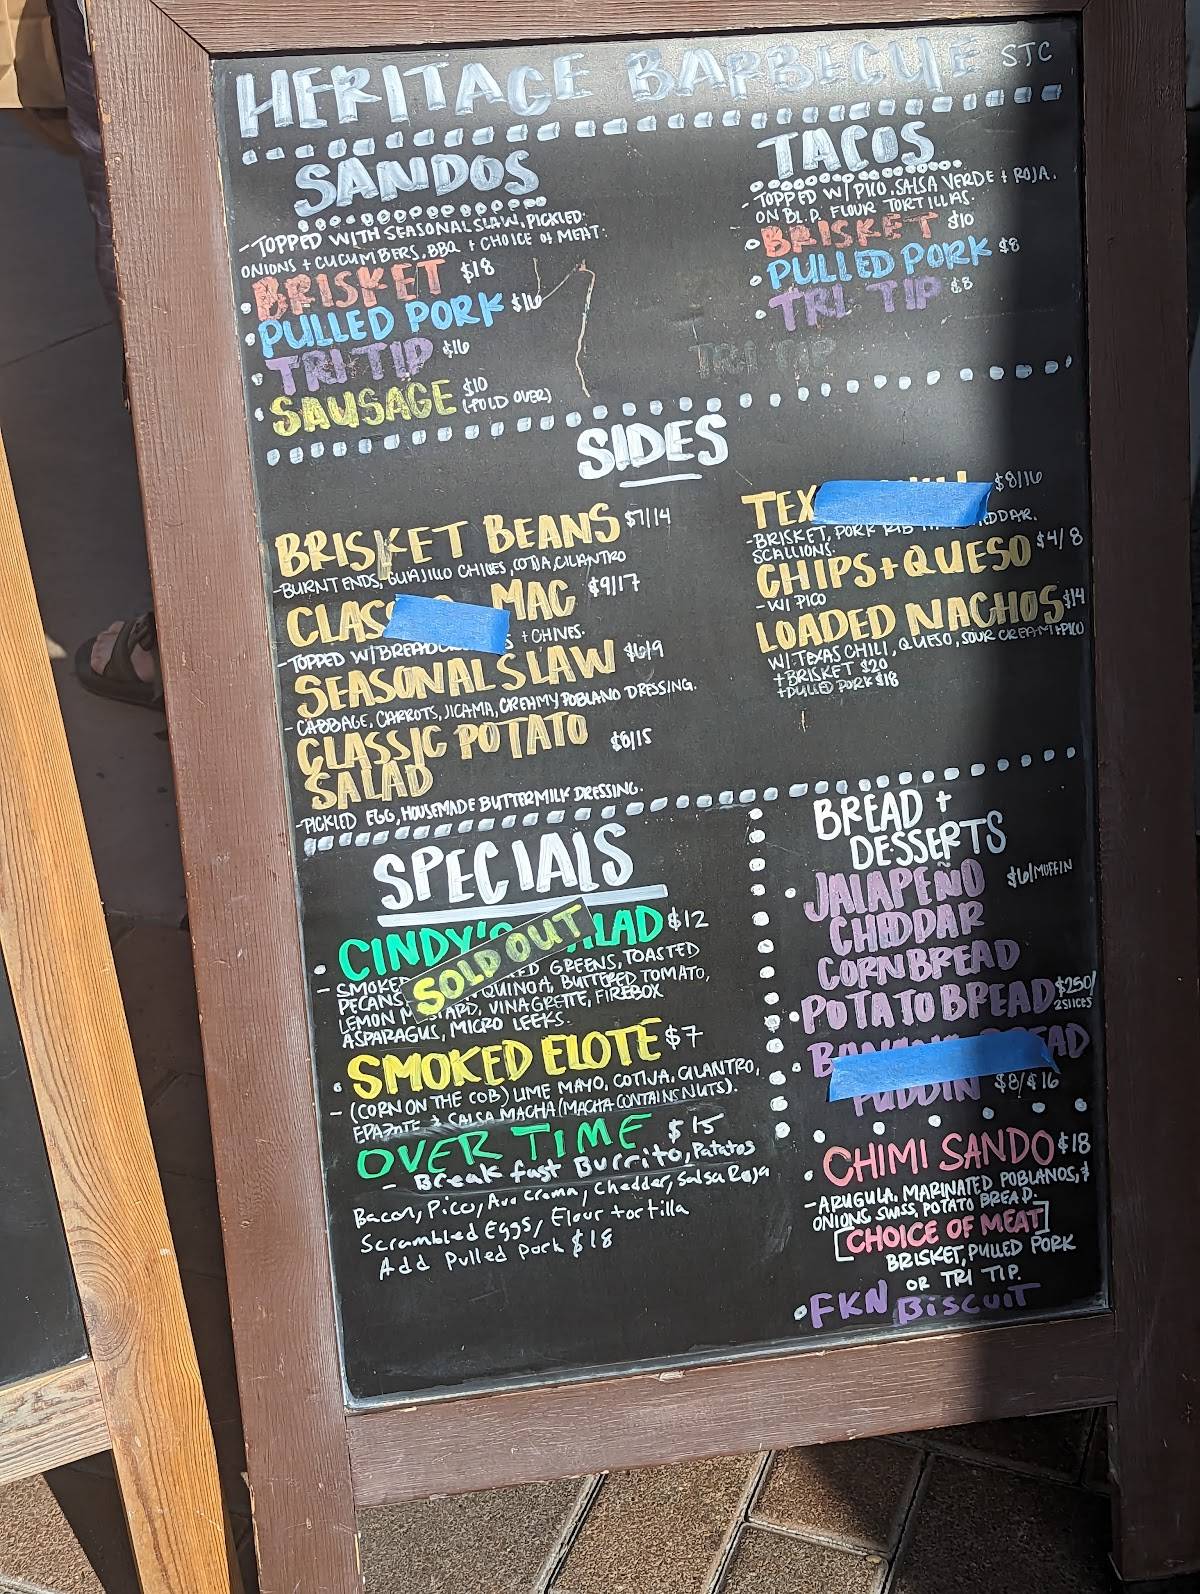 HERITAGE BARBECUE STC
SANDOS
- TOPPED WITH SEASONAL SLAW, PICKLED
ONIONS + CUCUMBERS, BBQ + CHOICE OF MEAT:
• BRISKET $18
• PULLED PORK $16
• TRI TIP $16
• SAUSAGE $10
(FOLD OVER)
TACOS
- TOPPED W/ PICO, SALSA VERDE + ROJA.
ON BL.P. FLOUR TORTILLAS.
• BRISKET $10
• PULLED PORK $8
• TRI TIP $8
TRI TIP
SIDES
BRISKET BEANS $7/14
- BURNT ENDS, GUAJILLO CHILES, COTIJA, CILANTRO
MAC $9/17
- TOPPED W/ + CHIVES.
SEASONAL SLAW $6/9
- CABBAGE, CARROTS, JICAMA, CREAMY POBLANO DRESSING.
CLASSIC POTATO $8/15
SALAD
- PICKLED EGG, HOUSEMADE BUTTERMILK DRESSING.
TEX $8/16
- BRISKET, PORK RIB
SCALLIONS.
CHIPS + QUESO $4/8
- W/ PICO
LOADED NACHOS $14
W/ TEXAS CHILI, QUESO, SOUR CREAM + PICO
+ BRISKET $20
+ PULLED PORK $18
SPECIALS
• CINDY'S SALAD $12
SOLD OUT
- GREENS, TOASTED
PECANS, QUINOA, BUTTERED TOMATO,
LEMON MUSTARD, VINAGRETTE, FIREBOX
ASPARAGUS, MICRO LEEKS.
• SMOKED ELOTE $7
- (CORN ON THE COB) LIME MAYO, COTIJA, CILANTRO,
EPAZOTE + SALSA MACHA (MACHA CONTAINS NUTS).
OVER TIME $15
- Breakfast Burrito, Patatos
Bacon, Pico, Avo Crema, Chedder, Salsa Roja
Scrambled Eggs, Flour tortilla
Add Pulled Pork $18
BREAD +
DESSERTS
• JALAPEÑO $6/MUFFIN
CHEDDAR
CORNBREAD
• POTATO BREAD $250/
2 SLICES
PUDDIN $8/$16
• CHIMI SANDO $18
- ARUGULA, MARINATED POBLANOS, +
ONIONS, SWISS, POTATO BREAD.
[CHOICE OF MEAT]
BRISKET, PULLED PORK
OR TRI TIP.
• FKN BISCUIT